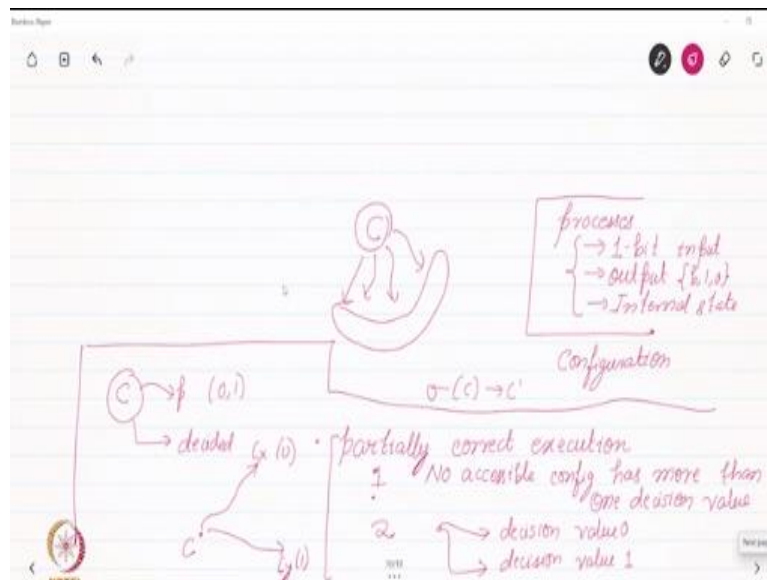 Bamboo Paper
C
processes
→ 1-bit input
→ output {b,1,0}
→ Internal state
Configuration
C → β (0,1)
→ decided
σ(C) → C'
Cx (0)
C
Cy (1)
partially correct execution
1. No accessible config has more than
one decision value
2. → decision value 0
→ decision value 1